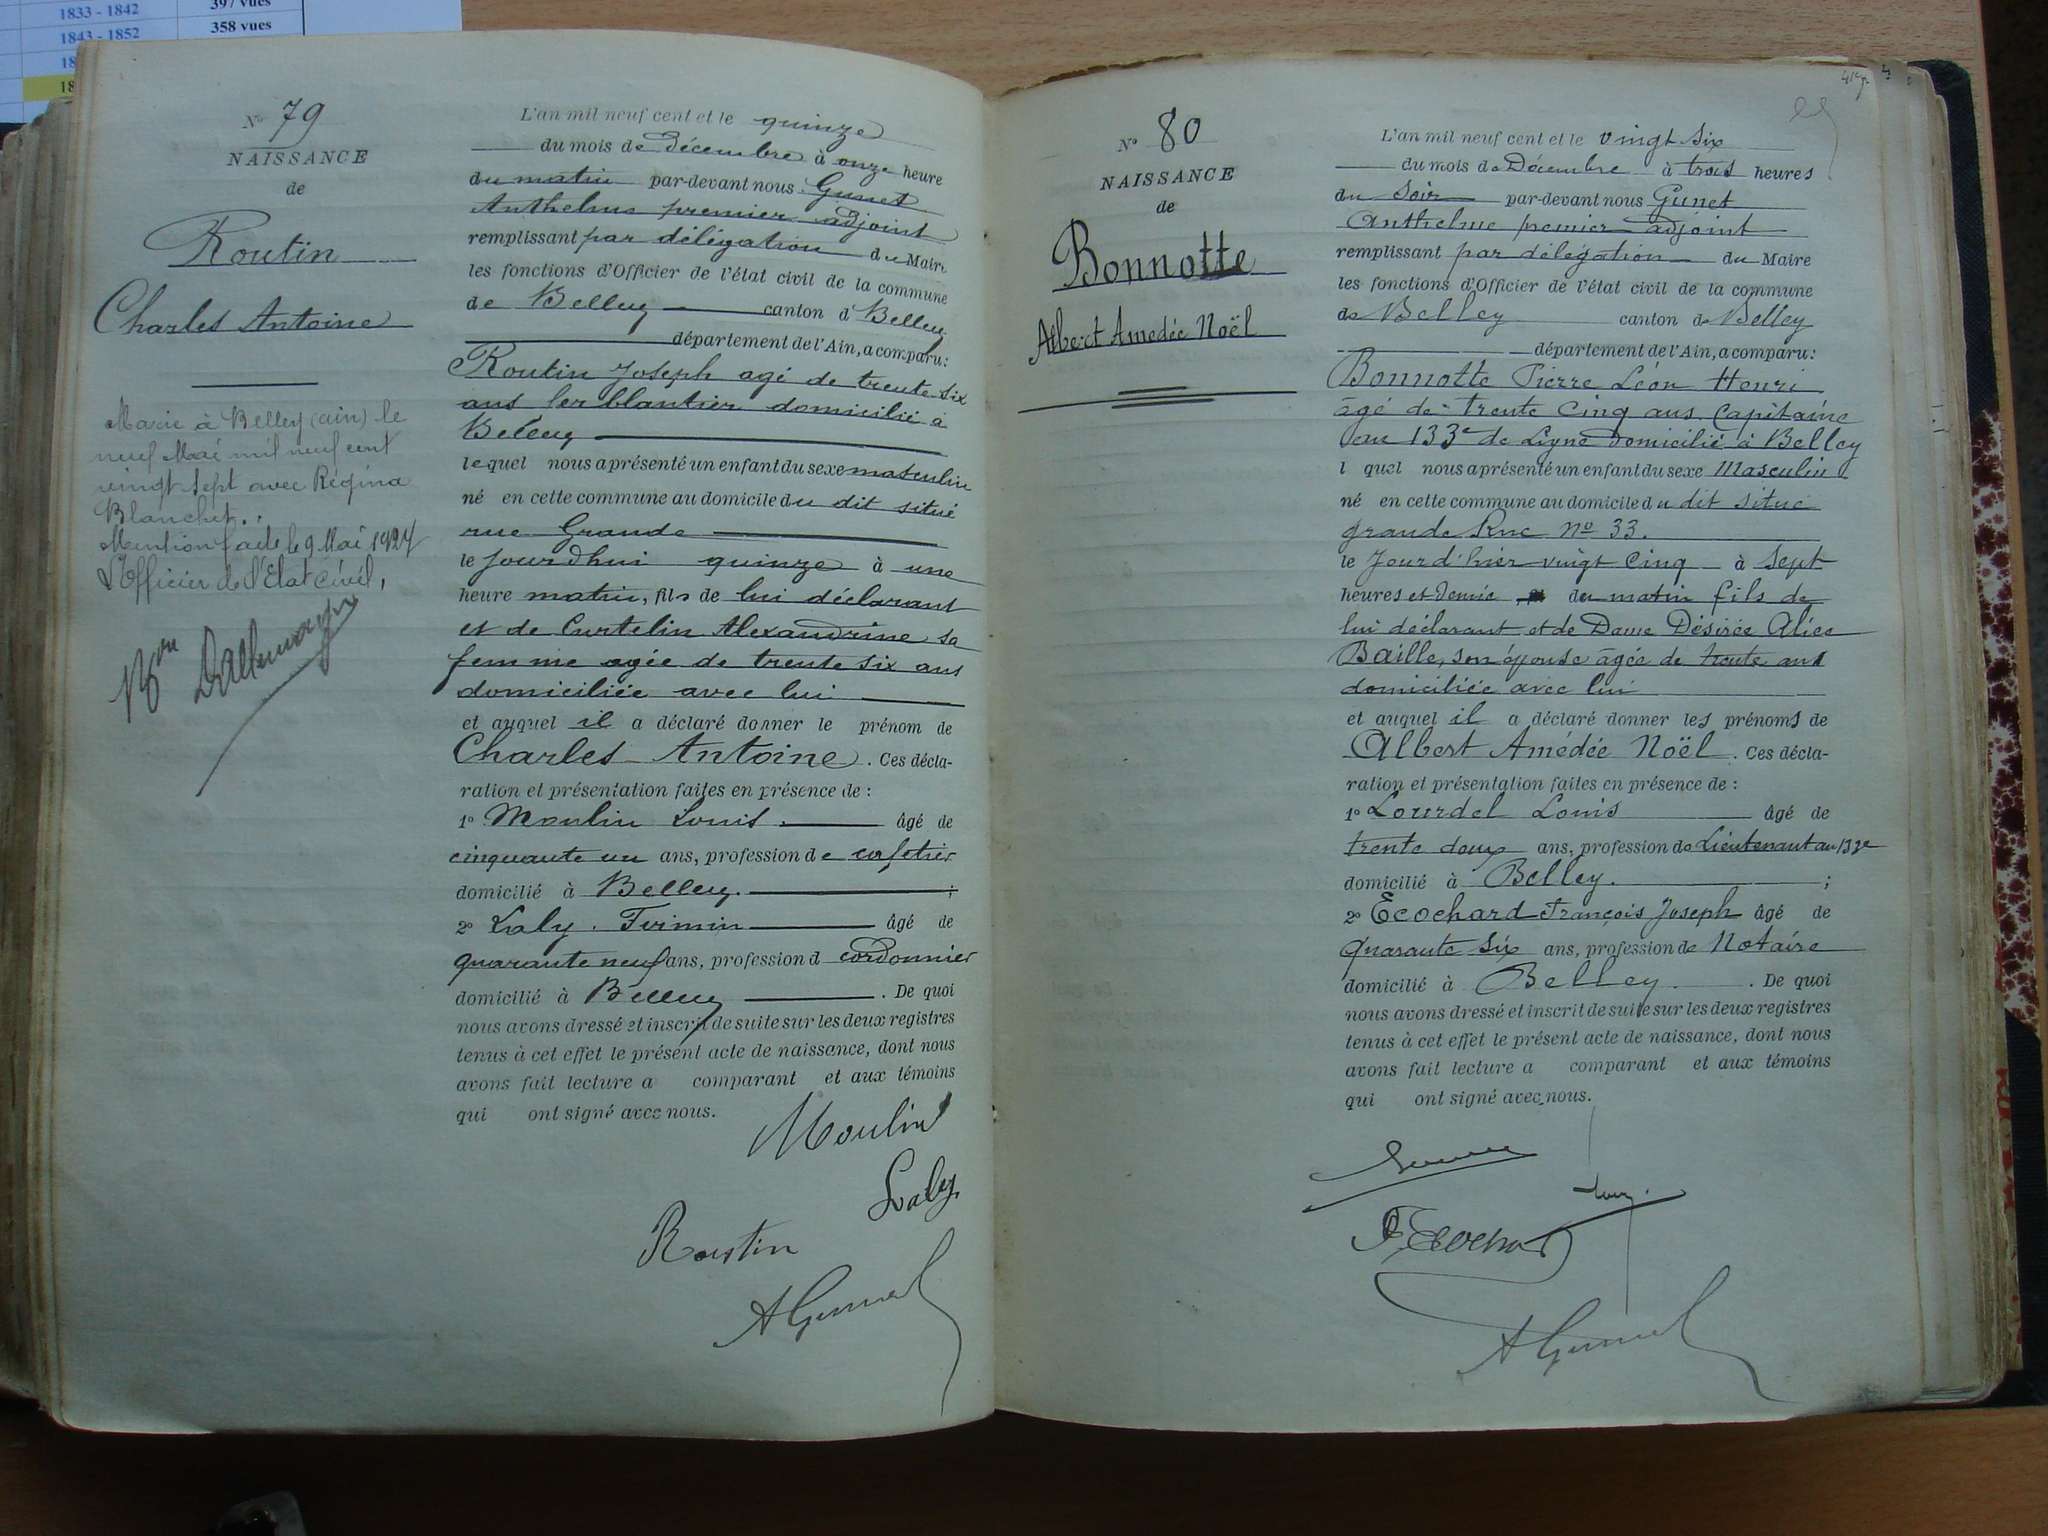 1833 - 1842 397 vues
1843 - 1852 358 vues
18
18
No 79
NAISSANCE
de
Routin
Charles Antoine
Marié à Belley (ain) le
neuf Mai mil neuf cent
vingt sept avec Régina
Blanchet.
Mention faite le 9 Mai 1927
L'Officier de l'Etat civil,
L'an mil neuf cent et le quinze
du mois de Décembre à onze heure
du matin par-devant nous Gunet
Anthelme premier adjoint
remplissant par délégation du Maire
les fonctions d'Officier de l'état civil de la commune
de Belley canton d Belley
département de l'Ain, a comparu:
Routin Joseph agé de trente six
ans ferblantier domicilié à
Belley
lequel nous a présenté un enfant du sexe masculin
né en cette commune au domicile du dit situé
rue Grande
le jourdhui quinze à une
heure matin, fils de lui déclarant
et de Curtelin Alexandrine sa
femme agée de trente six ans
domiciliée avec lui
et auquel il a déclaré donner le prénom de
Charles Antoine. Ces décla-
ration et présentation faites en présence de :
1o Moulin Louis âgé de
cinquante un ans, profession de cafetier
domicilié à Belley. ;
2o Laly Firmin âgé de
quarante neuf ans, profession d cordonnier
domicilié à Belley . De quoi
nous avons dressé et inscrit de suite sur les deux registres
tenus à cet effet le présent acte de naissance, dont nous
avons fait lecture a comparant et aux témoins
qui ont signé avec nous.
Moulin
Laly
Routin
A Gunet
No 80
NAISSANCE
de
Bonnotte
Albert Amedée Noël
L'an mil neuf cent et le vingt six
du mois de Décembre à trois heures
du Soir par-devant nous Gunet
Anthelme premier adjoint
remplissant par délégation du Maire
les fonctions d'Officier de l'état civil de la commune
de Belley canton de Belley
département de l'Ain, a comparu:
Bonnotte Pierre Léon Henri
âgé de trente cinq ans Capitaine
au 133e de Ligne domicilié à Belley
l quel nous a présenté un enfant du sexe Masculin
né en cette commune au domicile du dit situé
grande Rue no 33.
le Jour d'hier vingt cinq à Sept
heures et demie du matin fils de
lui déclarant et de Dame Désirée Alice
Baille, son épouse âgée de trente ans
domiciliée avec lui
et auquel il a déclaré donner les prénoms de
Albert Amédée Noël. Ces décla-
ration et présentation faites en présence de :
1o Lourdel Louis âgé de
trente deux ans, profession de Lieutenant au 133e
domicilié à Belley. ;
2o Ecochard François Joseph âgé de
Quarante Six ans, profession de Notaire
domicilié à Belley . De quoi
nous avons dressé et inscrit de suite sur les deux registres
tenus à cet effet le présent acte de naissance, dont nous
avons fait lecture a comparant et aux témoins
qui ont signé avec nous.
F. Ecochard
A Gunet